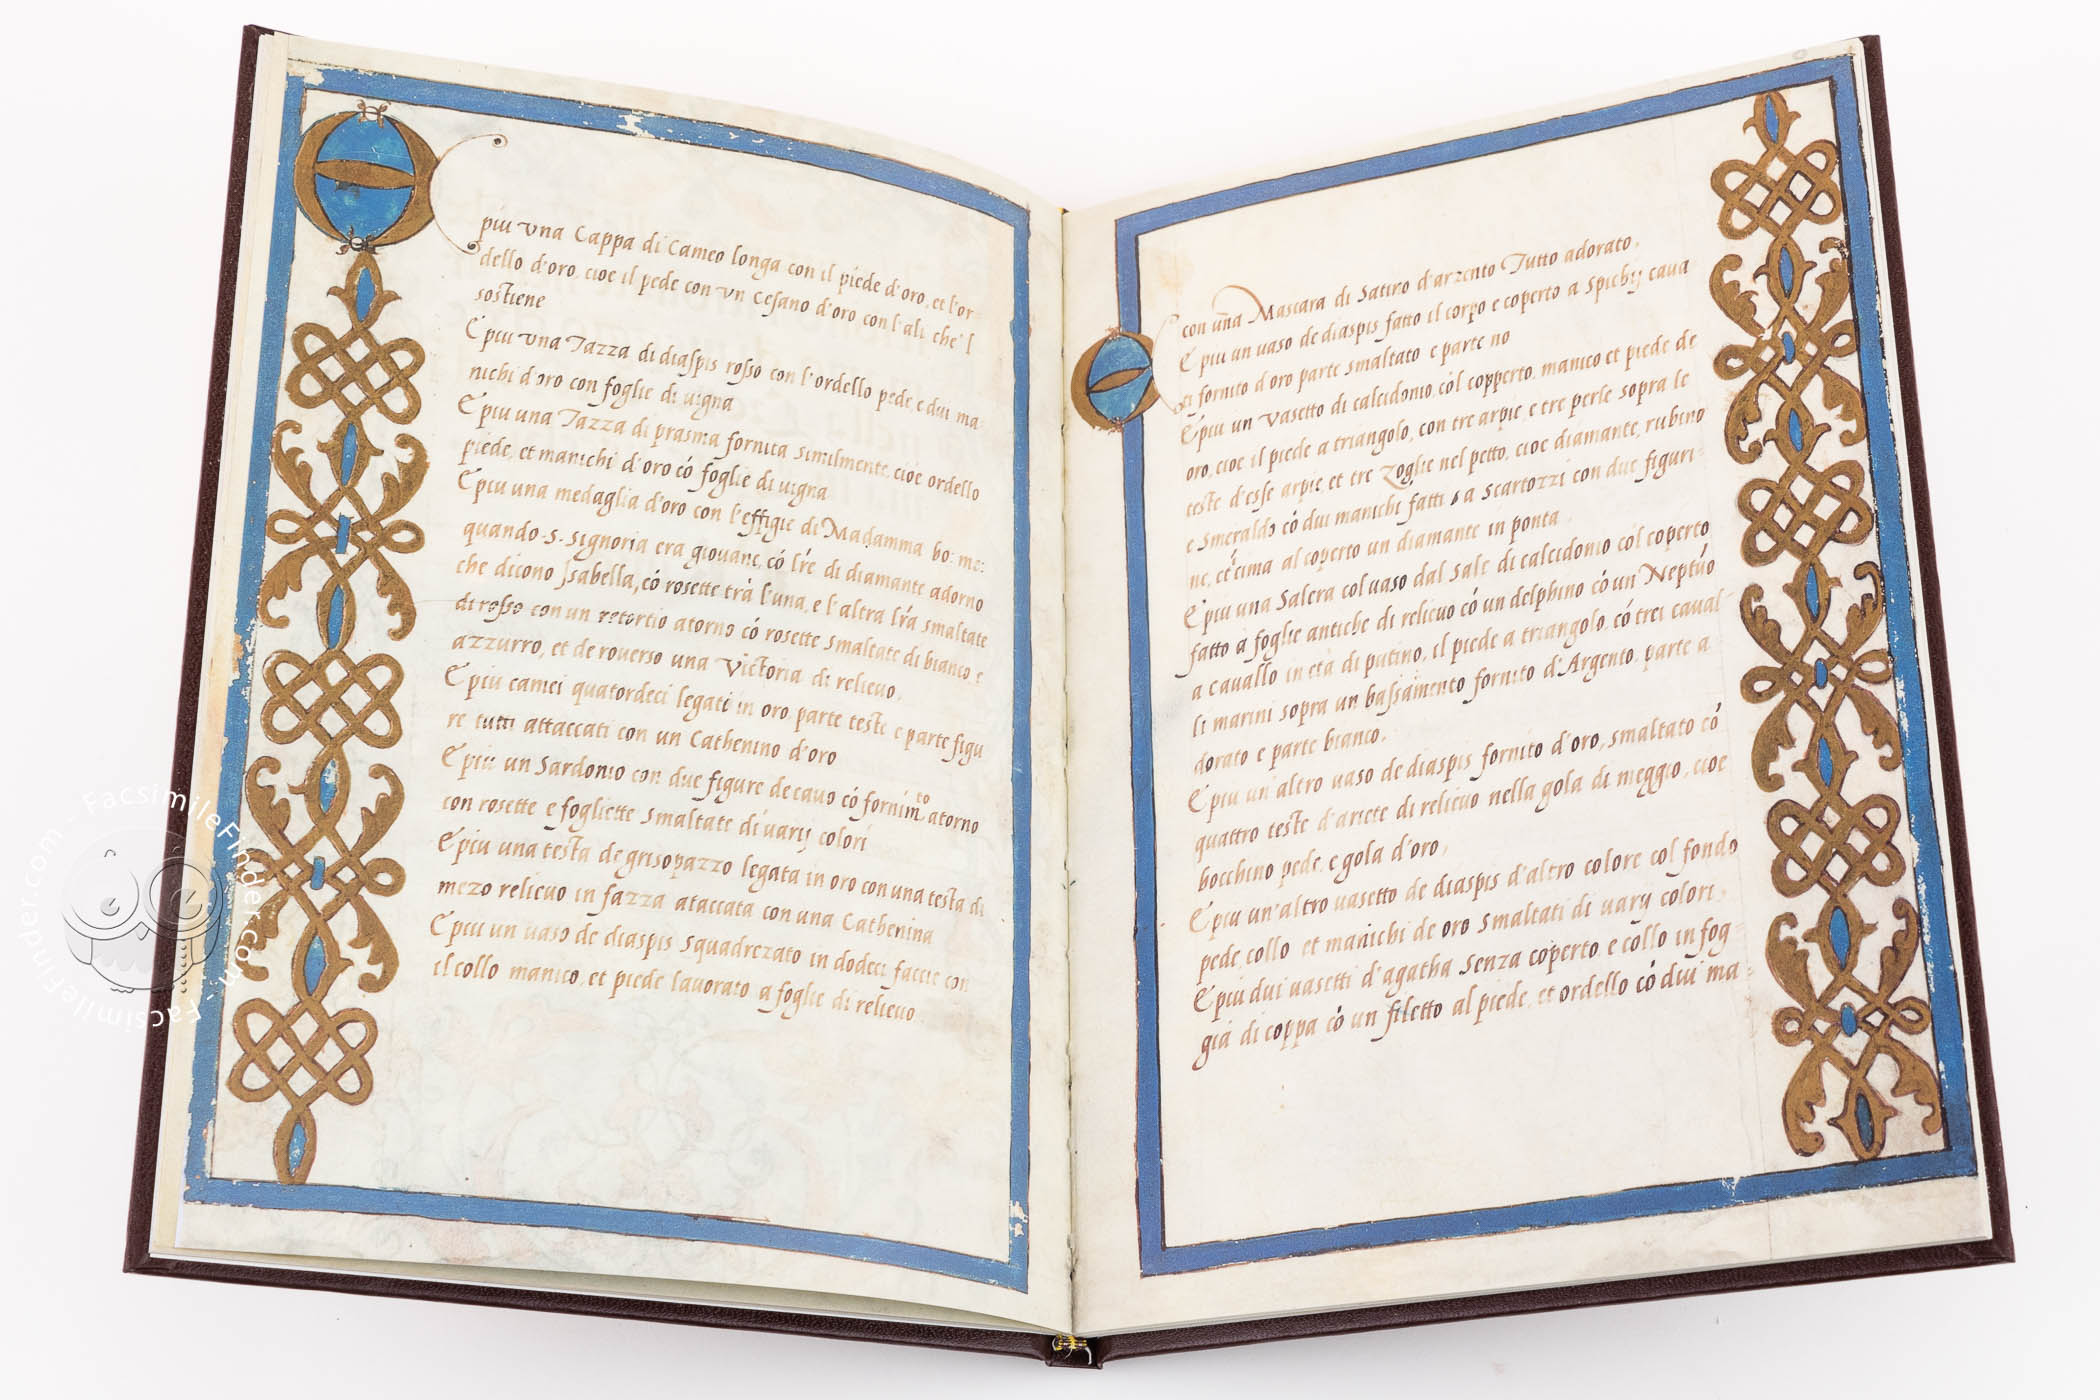 E piu una Cappa di Cameo longa con il piede d'oro, et l'or-
dello d'oro, cioe il pede con un Cesano d'oro con l'ali che'l
sostiene
E piu una Tazza di diaspis rosso con l'ordello pede e dui ma-
nichi d'oro con foglie di uigna
E piu una Tazza di prasma fornita similmente, cioe ordello
piede, et manichi d'oro có foglie di uigna
E piu una medaglia d'oro con l'effigie di Madamma bo: me:
quando .S. signoria era giouane, có lře di diamante adorno
che dicono Isabella, có rosette trà l'una, e l'altra lřa smaltate
di rosso con un retortio atorno có rosette smaltate di bianco e
azzurro, et de rouerso una Victoria di relieuo.
E piu camei quatordeci legati in oro parte teste e parte figu
re tutti attaccati con un Cathenino d'oro
E piu un Sardonio con due figure de cauo có fornimto atorno
con rosette e fogliette smaltate di uarij colori
E piu una testa de grisopazzo legata in oro con una testa di
mezo relieuo in fazza ataccata con una Cathenina
E piu un uaso de diaspis squadrezato in dodeci faccie con
il collo manico, et piede lauorato a foglie di relieuo.
con una Mascara di Satiro d'arzento Tutto adorato.
E piu un uaso de diaspis fatto il corpo e coperto a spichij caua
ti fornito d'oro parte smaltato e parte no
E piu un vasetto di calcidonio cól copperto, manico et piede de
oro, cioe il piede a triangolo, con tre arpie, e tre perle sopra le
teste d'esse arpie, et tre zoglie nel petto, cioe diamante, rubino
e smeraldo có dui manichi fatti a scartozzi con due figuri-
ne, et ĩ cima al coperto un diamante in ponta.
E piu una Salera col uaso dal sale di calcidonio cól coperto
fatto a foglie antiche di relieuo có un delphino có un Neptúo
a cauallo in età di putino, il piede a triangolo, có trei caual-
li marini sopra un bassamento fornito d'Argento, parte a
dorato e parte bianco.
E piu un altro uaso de diaspis fornito d'oro, smaltato có
quattro teste d'ariete di relieuo nella gola di meggio, cioe
bocchino pede, e gola d'oro,
E piu un'altro uasetto de diaspis d'altro colore col fondo
pede, collo et manichi de oro smaltati di uarij colori.
E piu dui uasetti d'agatha senza coperto, e collo in fog-
gia di coppa có un filetto al piede, et ordello có dui ma-
FacsimileFinder.com · FacsimileFinder.com · FacsimileFinder.com